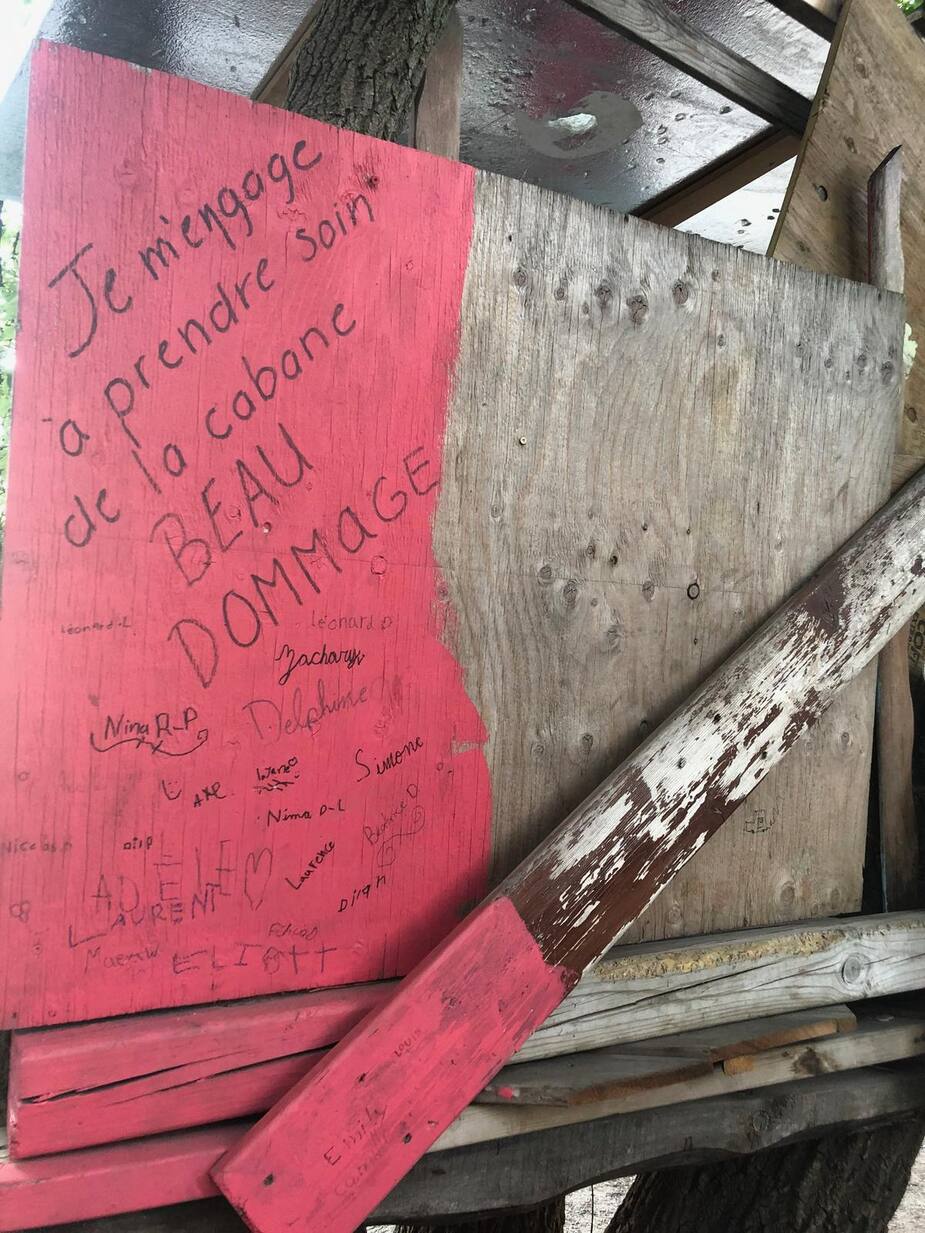 Je m'engage
à prendre soin
de la cabane
BEAU
DOMMAGE
Léonard-L
Léonard D
Zachary
Delphine
Nina R-P
Simone
AXE
Nima D-L
Béatrice D.
Nicolas P
Laurence
ADELE
LAURENT
Dilan
Maeva
ELIOTT
LOUIS
Emily